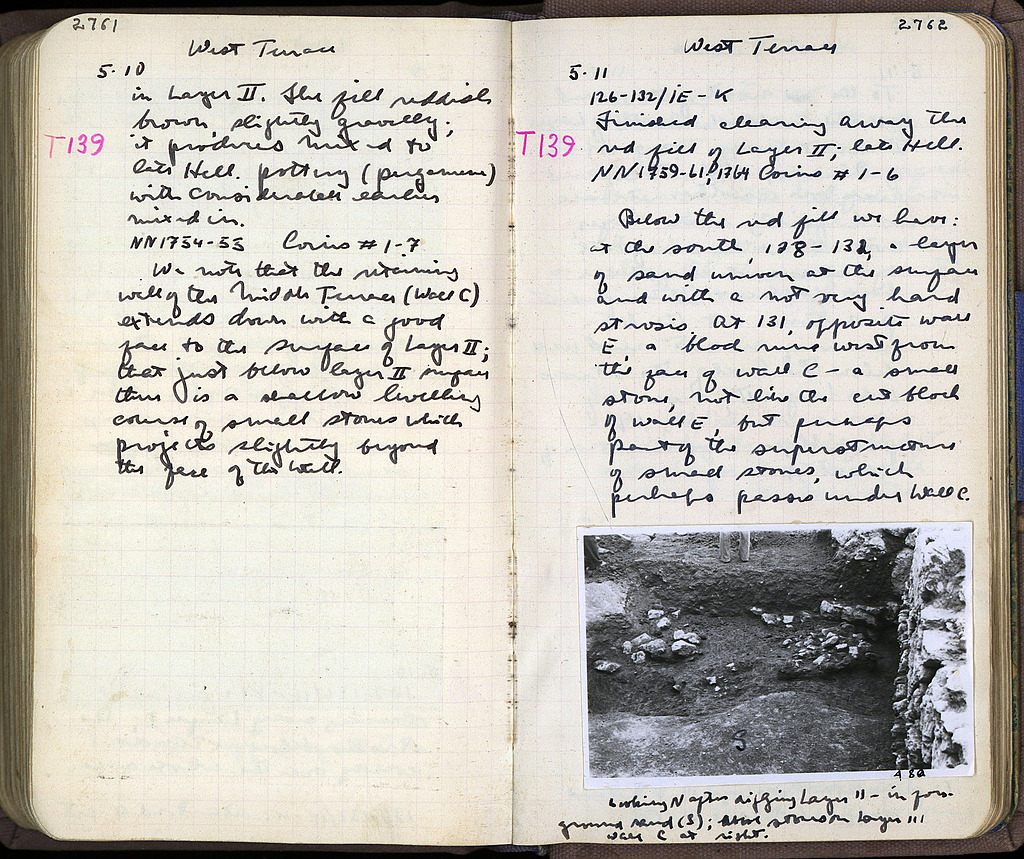 2761
West Terrace
5·10
in Layer II. The fill reddish
brown, slightly gravelly;
T139
it produces mixed to
late Hell. pottery (pergamene)
with considerable earlier
mixed in.
NN1754-55 Coins # 1-7
We note that the retaining
wall of the Middle Terrace (Wall C)
extends down with a good
face to the surface of Layer II;
that just below layer II surface
there is a shallow levelling
course of small stones which
projects slightly beyond
the face of the wall.
2762
West Terrace
5·11
126-132/1E-K
Finished clearing away the
T139
red fill of Layer II; late Hell.
NN1759-61, 1764 Coins # 1-6
Below the red fill we have:
at the south, 128-132, a layer
of sand uneven at the surface
and with a not very hard
strosis. At 131, opposite wall
E, a block runs west from
the face of wall C - a small
stone, not like the cut block
of wall E, but perhaps
part of the superstructure
of small stones, which
perhaps passes under Wall C.
S
A 80
Looking N after digging Layer II - in fore-
ground sand (S); stones in Layer III
Wall C at right.